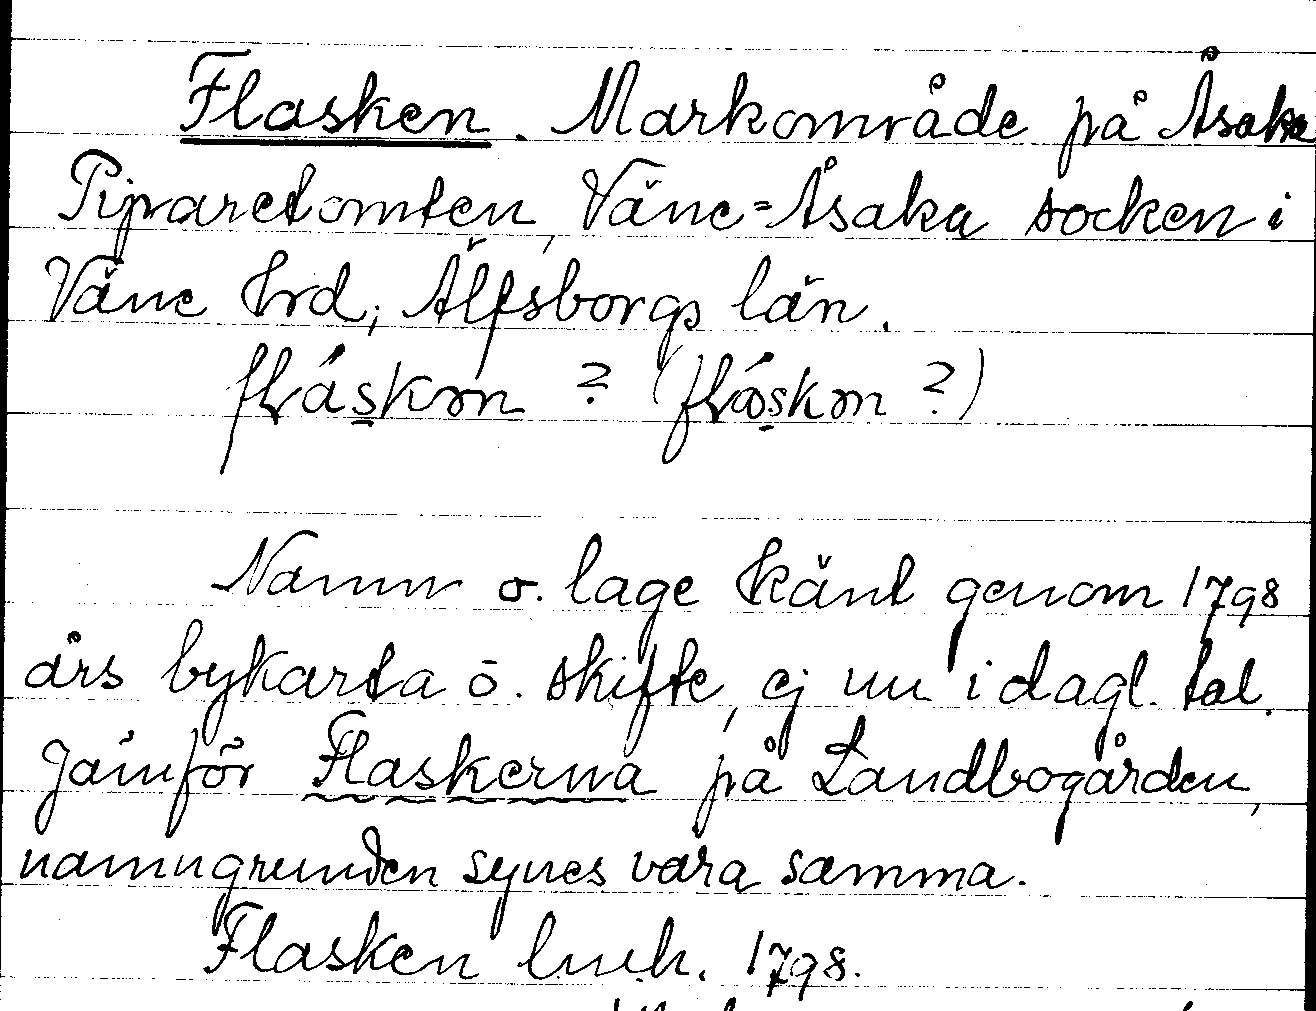 Flasken. Markområde på Åsaka
Piparetomten, Väne-Åsaka socken i
Väne hrd, Älfsborgs län.
flåskɷn ? (flåskɷn ?)
Namn o. läge känt genom 1798
års bykarta o. skifte, ej nu i dagl. tal.
Jämför Flaskerna på Landbogården,
namngrunden synes vara samma.
Flasken lmh. 1798.